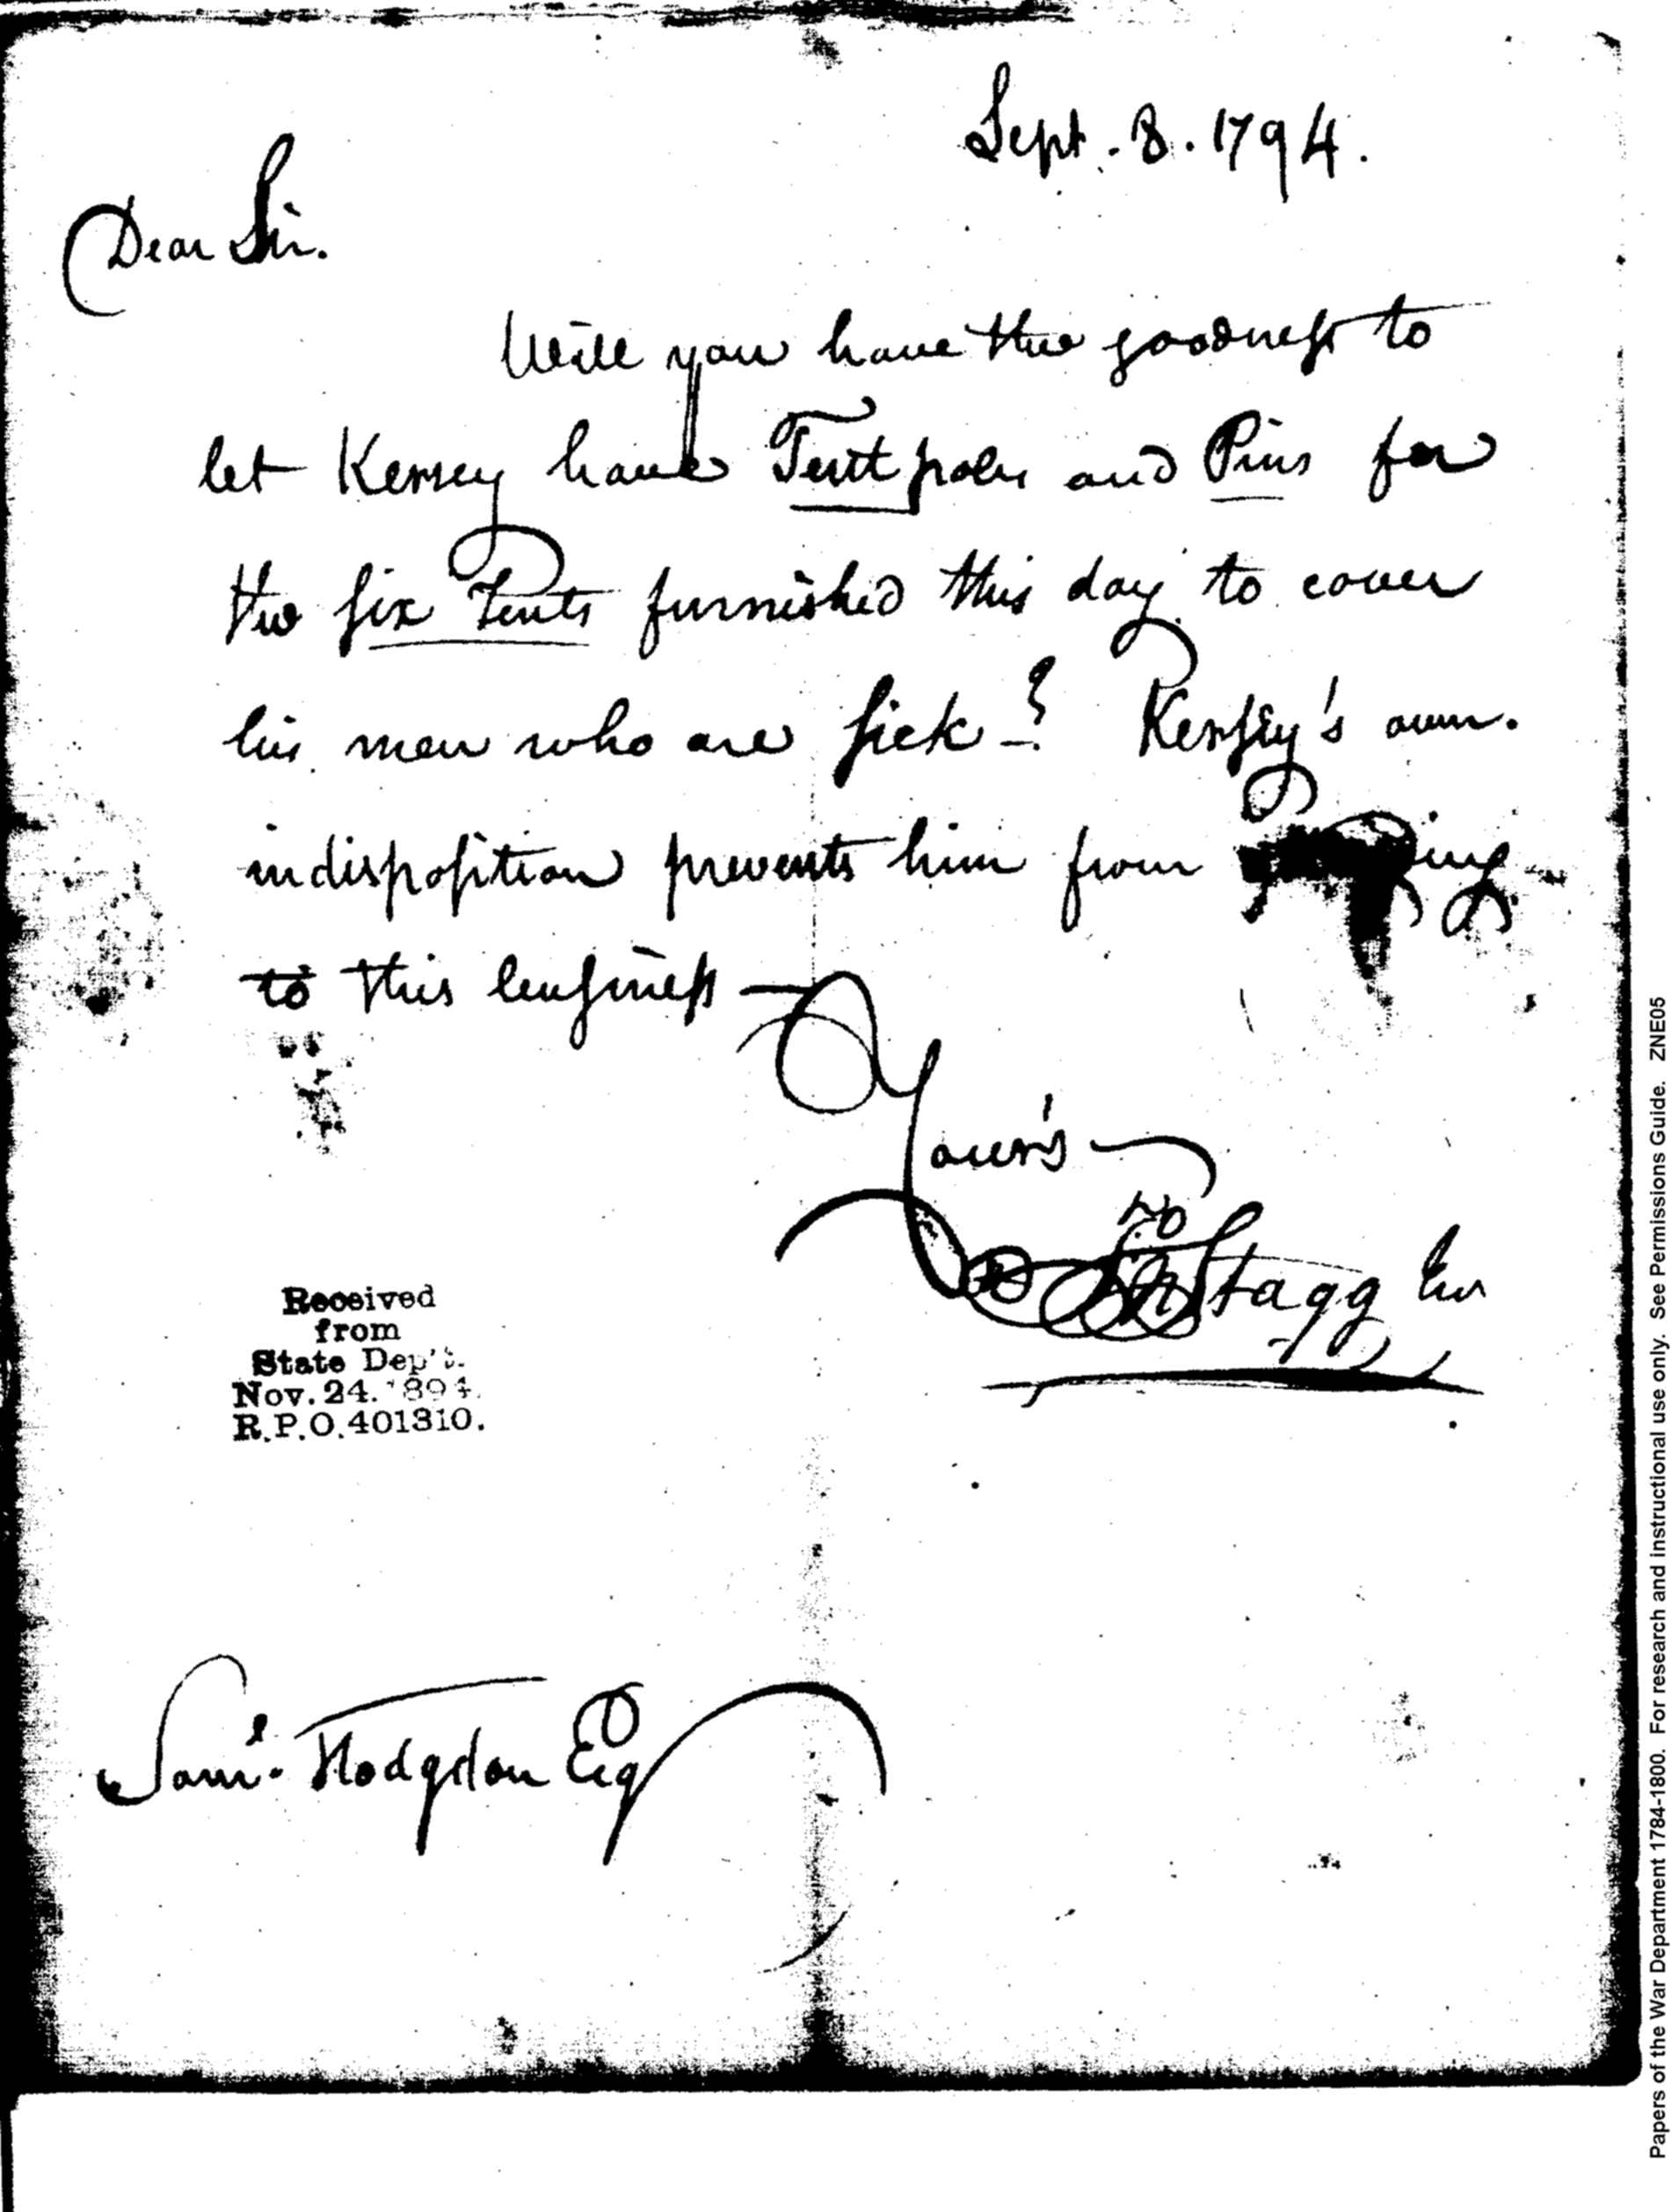 Sept. 8. 1794.
Dear Sir.
Will you have the goodness to
let Kersey have Tent poles and Pins for
the six Tents furnished this day to cover
his men who are sick–? Kersey's own.
indisposition prevents him from
to this business —
Your's
Jno Stagg Jun
Received
from
State Dep't.
Nov. 24. 1894.
R.P.O. 401310.
Saml. Hodgdon Esq
Papers of the War Department 1784-1800. For research and instructional use only. See Permissions Guide. ZNE05